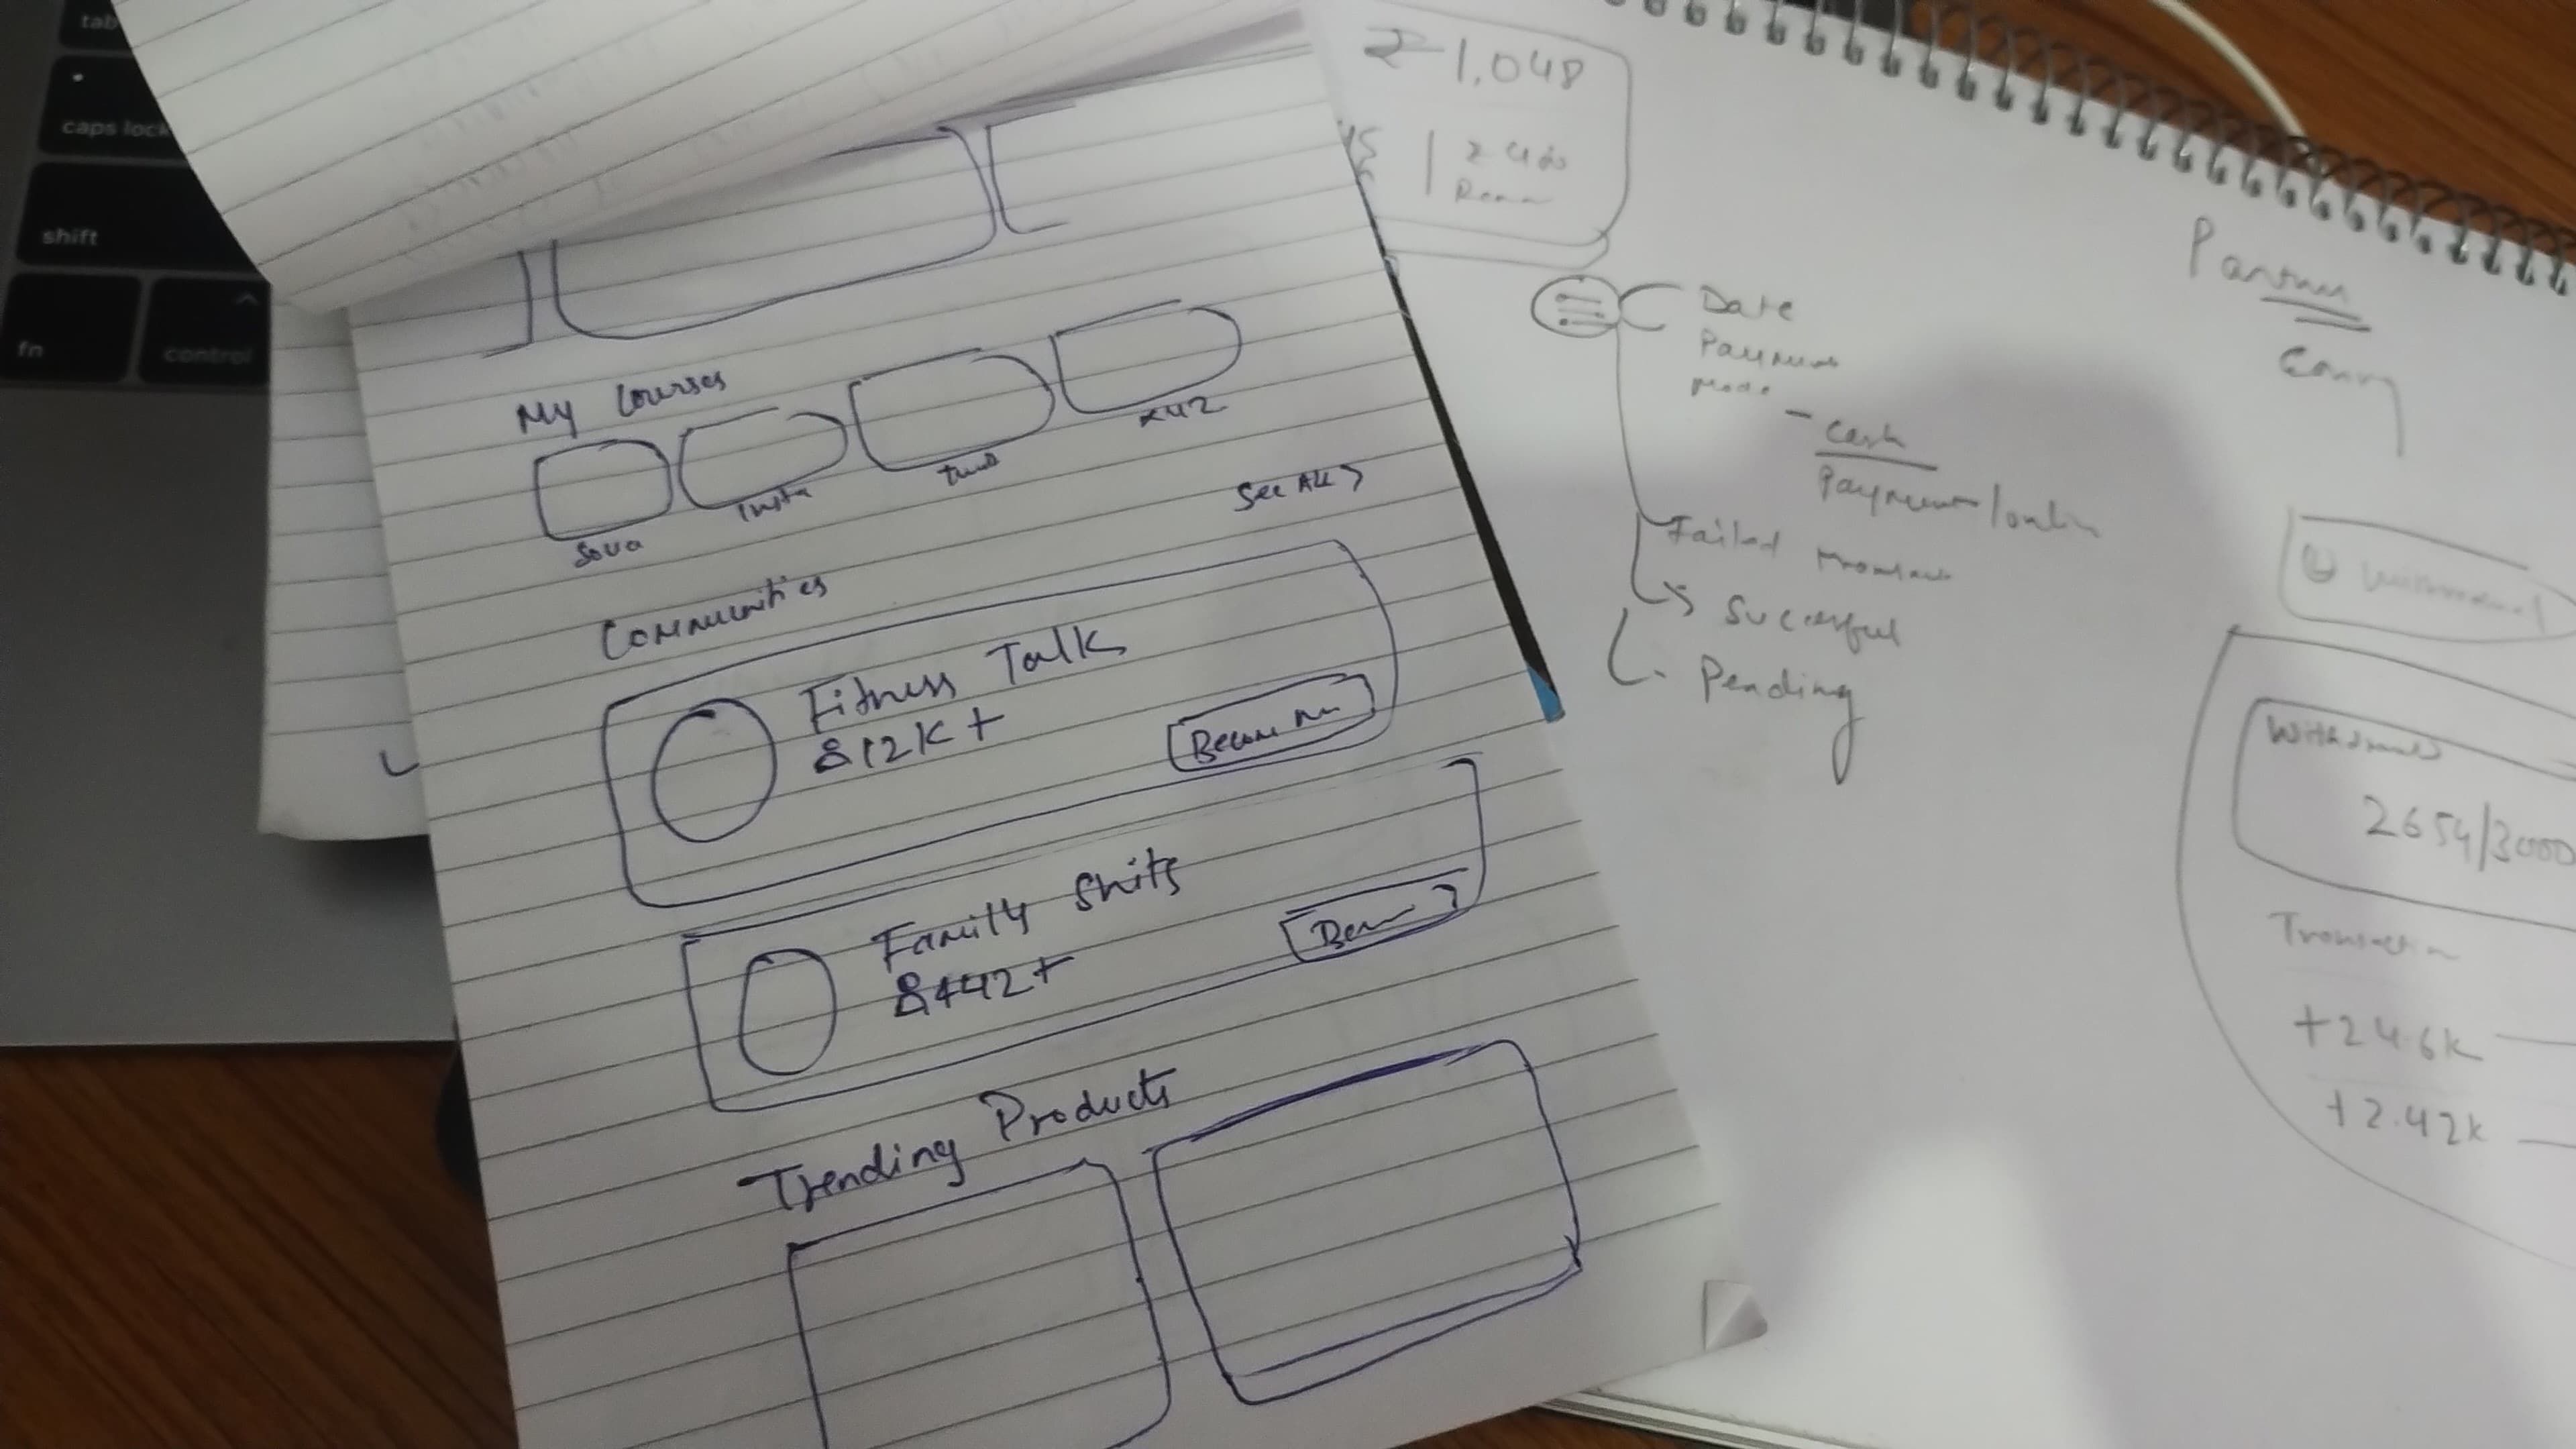 tab
caps lock
shift
fn
control
My Courses
Sova
Insta
x42
See All >
Communities
Fitness Talk
12K+
Family Shits
442+
Trending Products
1,048
Date
Payment
Mode
- Cash
Payment/onlin
Failed
Successful
Pending
2654/3000
Transaction
+24.6k
+2.42k